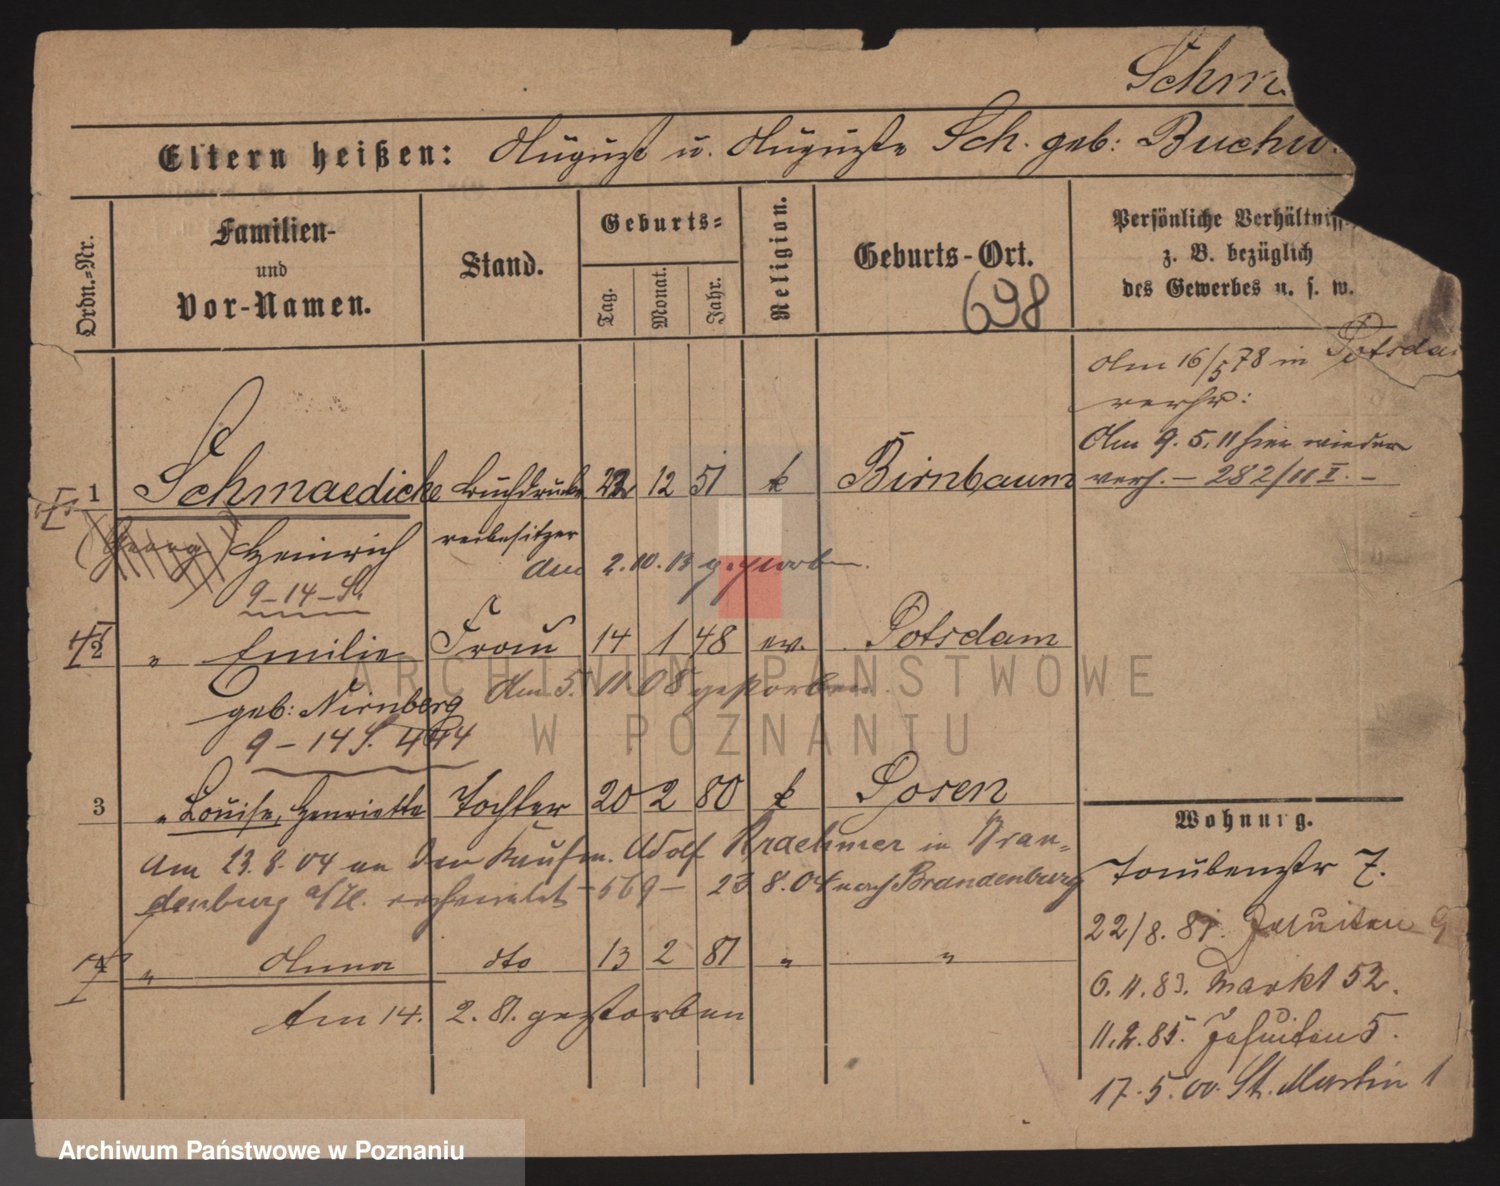 Schm
Eltern heißen: August u. Auguste Sch. geb: Buchw
Ordn.-Nr.
Familien-
und
Vor-Namen.
Stand.
Geburts-
Tag.
Monat.
Jahr.
Religion.
Geburts-Ort.
698
Persönliche Verhältniss
z. B. bezüglich
des Gewerbes u. s. w.
Am 16/5 78 in Potsda
verhr:
Am 9. 5. 11 hier wieder
verh. – 282/11 I. –
1 Schmaedicke Buchdrucke 22 12 51 k Birnbaum
(Georg) Heinrich reibesitzer
den 2. 10. 13 gestorben.
9–14–S.
2 " Emilie Frau 14 1 48 ev. Potsdam
Am 5. 11 08 gestorben.
geb: Nirnberg
9–14 S. 444
3 " Louise, Henriette Tochter 20 2 80 k Posen
Am 23. 8. 04 an den Kaufm. Adolf Kraehmer in Bran-
denburg a/H. verheiratet –569– 23 8. 04 nach Brandenburg
4 " Anna dto 13 2 81 " "
Am 14. 2. 81. gestorben
Wohnung.
Taubenstr 7.
22/8. 81. Jesuiten 9
6. 11. 83. Markt 52.
11. 2. 85. Jesuiten 5.
17. 5. 00. St. Martin 1
ARCHIWUM PAŃSTWOWE
W POZNANIU
Archiwum Państwowe w Poznaniu